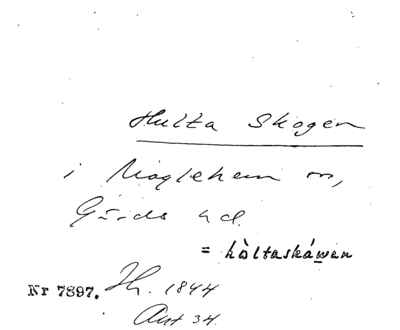 Hulta Skogen
i Maglehem sn,
Gärds hd.
= hòltaskáwan
Nr 7897. Th. 1844
Ant 34